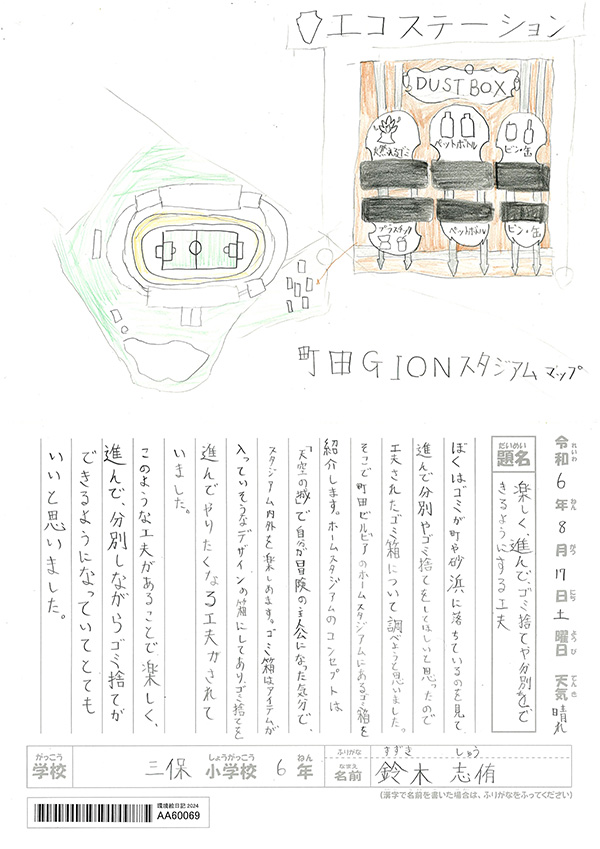 エコステーション
DUST BOX
燃えるゴミ
ペットボトル
ビン・缶
プラスチック
ペットボトル
ビン・缶
町田GIONスタジアムマップ
令和6年8月17日土曜日 天気 晴れ
れいわ ねん がつ にち ようび てんき
だいめい
題名
楽しく、進んで、ゴミ捨てや分別をで
きるようにする工夫
ぼくはゴミが町や砂浜に落ちているのを見て、
進んで分別やゴミ捨てをしてほしいと思ったので
工夫されたゴミ箱について調べようと思いました。
そこで町田ゼルビアのホームスタジアムにあるゴミ箱を
紹介します。ホームスタジアムのコンセプトは
「天空の城」で自分が冒険の主人公になった気分で、
スタジアム内外を楽しめます。ゴミ箱はアイテムが
入っていそうなデザインの箱にしてあり、ゴミ捨てを
進んでやりたくなる工夫がされて
いました。
このような工夫があることで楽しく、
進んで、分別しながらゴミ捨てが
できるようになっていてとても
いいと思いました。
がっこう しょうがっこう ねん ふりがな すずき しゅう
学校 三保 小学校 6年 なまえ 名前 鈴木 志侑
(漢字で名前を書いた場合は、ふりがなをふってください)
環境絵日記 2024
AA60069